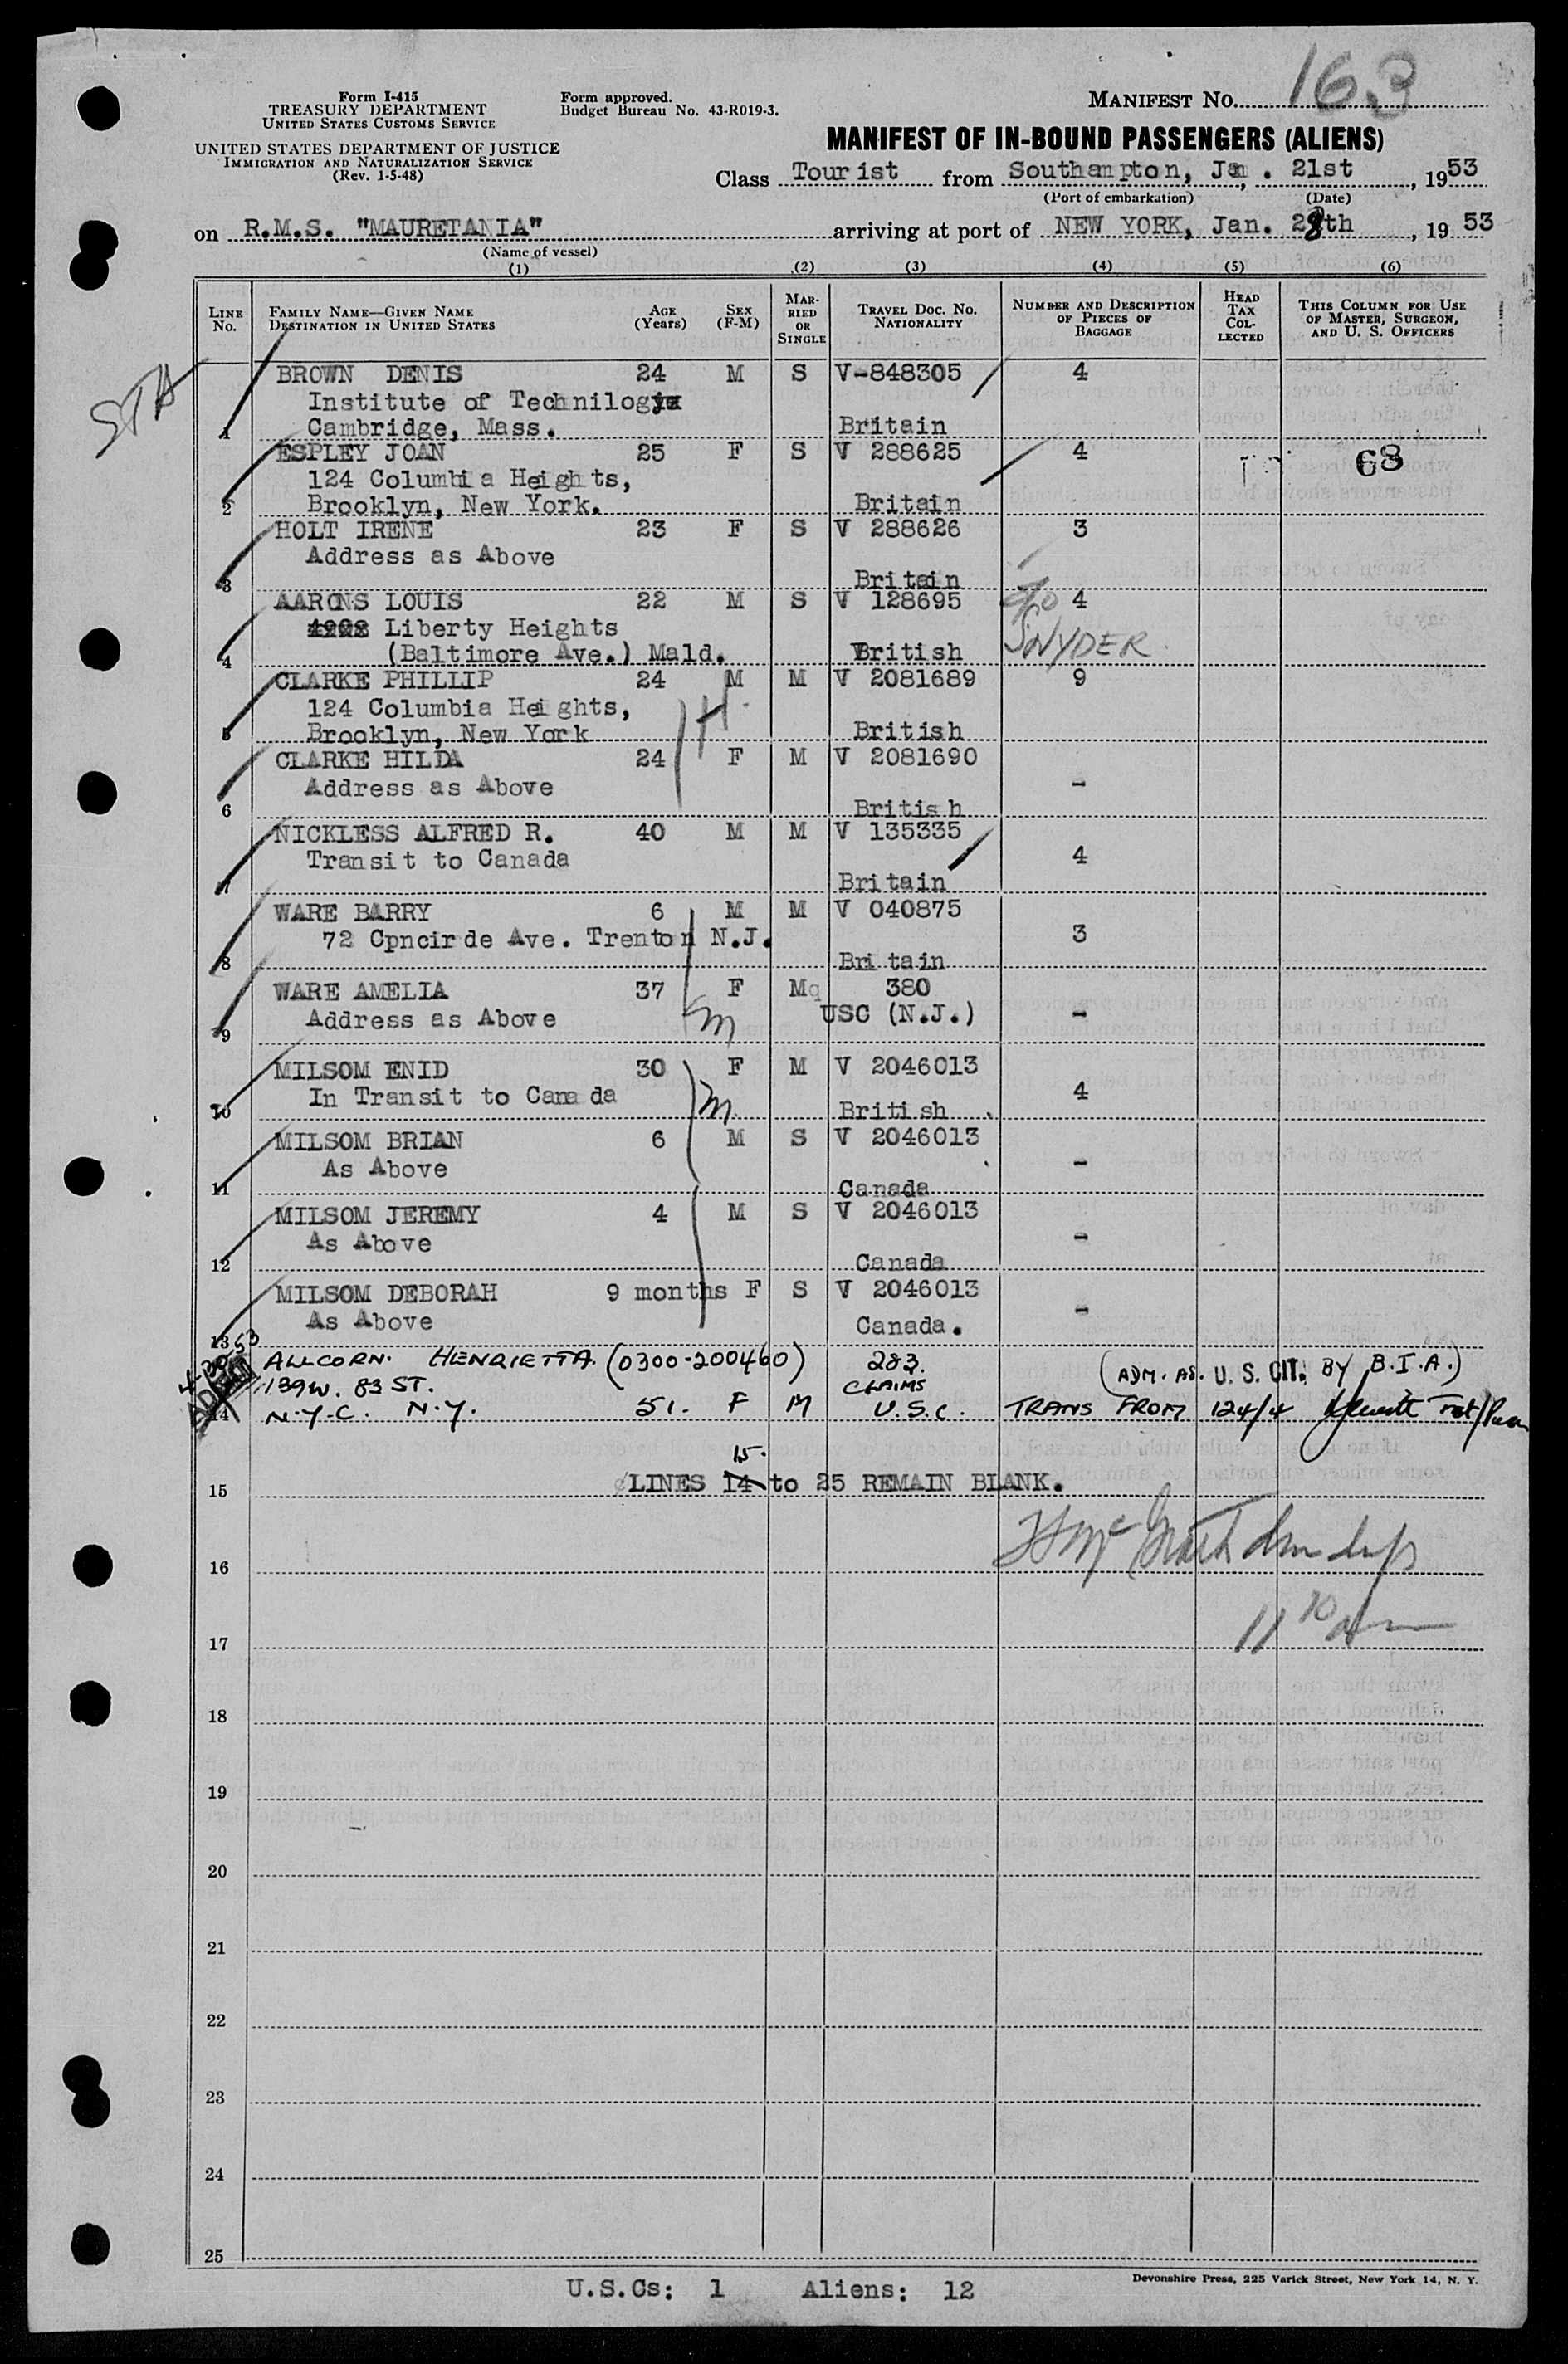 163
Form I-415
TREASURY DEPARTMENT
UNITED STATES CUSTOMS SERVICE
UNITED STATES DEPARTMENT OF JUSTICE
IMMIGRATION AND NATURALIZATION SERVICE
(Rev. 1-5-48)
Form approved.
Budget Bureau No. 43-R019-3.
MANIFEST NO.
MANIFEST OF IN-BOUND PASSENGERS (ALIENS)
Class Tourist from Southampton, Jan. 21st, 1953
(Port of embarkation) (Date)
on R.M.S. "MAURETANIA" arriving at port of NEW YORK, Jan. 28th, 1953
(Name of vessel)
(1) (2) (3) (4) (5) (6)
LINE NO. FAMILY NAME—GIVEN NAME DESTINATION IN UNITED STATES AGE (Years) SEX (F-M) MARRIED OR SINGLE TRAVEL DOC. NO. NATIONALITY NUMBER AND DESCRIPTION OF PIECES OF BAGGAGE HEAD TAX COLLECTED THIS COLUMN FOR USE OF MASTER, SURGEON, AND U. S. OFFICERS
STA
BROWN DENIS 24 M S V-848305 4
Institute of Technilogy
1 Cambridge, Mass. Britain
ESPLEY JOAN 25 F S V 288625 4 68
124 Columbia Heights,
2 Brooklyn, New York. Britain
HOLT IRENE 23 F S V 288626 3
Address as Above
3 Britain
AARONS LOUIS 22 M S V 128695 c/o 4
Liberty Heights SNYDER
4 (Baltimore Ave.) Mald. British
CLARKE PHILLIP 24 M M V 2081689 9
124 Columbia Heights,
5 Brooklyn, New York British
CLARKE HILDA 24 F M V 2081690
Address as Above -
6 British
NICKLESS ALFRED R. 40 M M V 135335
Transit to Canada 4
7 Britain
WARE BARRY 6 M M V 040875
72 Cpncirde Ave. Trenton N.J. 3
8 Britain
WARE AMELIA 37 F M 380
Address as Above USC (N.J.) -
9
MILSOM ENID 30 F M V 2046013
In Transit to Canada 4
10 British
MILSOM BRIAN 6 M S V 2046013
As Above -
11 Canada
MILSOM JEREMY 4 M S V 2046013
As Above -
12 Canada
MILSOM DEBORAH 9 months F S V 2046013
As Above Canada. -
13
ALLCORN. HENRIETTA. (0300-200460) 283. (ADM. AS. U. S. CIT. BY B.I.A.)
139 W. 83 ST. CLAIMS
14 N.Y.C. N.Y. 51. F M U.S.C. TRANS FROM 124/4
15.
15 LINES 14 to 25 REMAIN BLANK.
16
17
18
19
20
21
22
23
24
25
U.S.Cs: 1 Aliens: 12
Devonshire Press, 225 Varick Street, New York 14, N. Y.